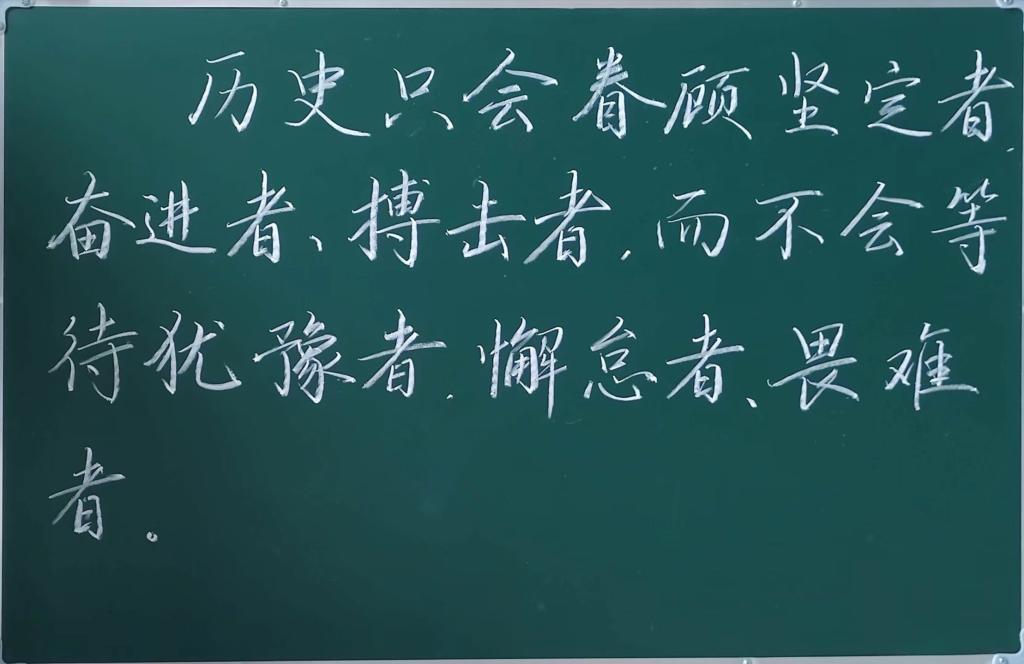 历史只会眷顾坚定者、
奋进者、搏击者,而不会等
待犹豫者、懈怠者、畏难
者。